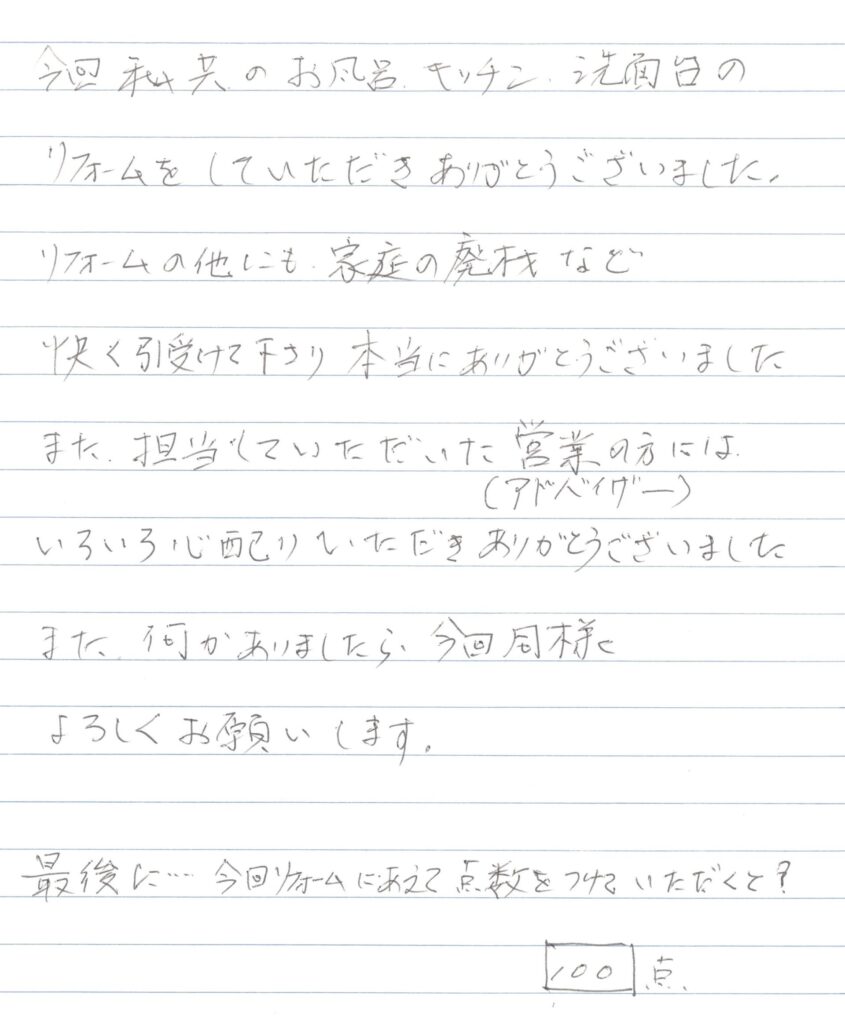 今回私共のお風呂、キッチン、洗面台の
リフォームをしていただきありがとうございました。
リフォームの他にも、家庭の廃材など
快く引受けて下さり本当にありがとうございました
また、担当していただいた営業の方には、
(アドバイザー)
いろいろ心配りいただきありがとうございました
また、何かありましたら、今回同様に
よろしくお願いします。
最後に… 今回リフォームにあえて点数をつけていただくと?
100 点、